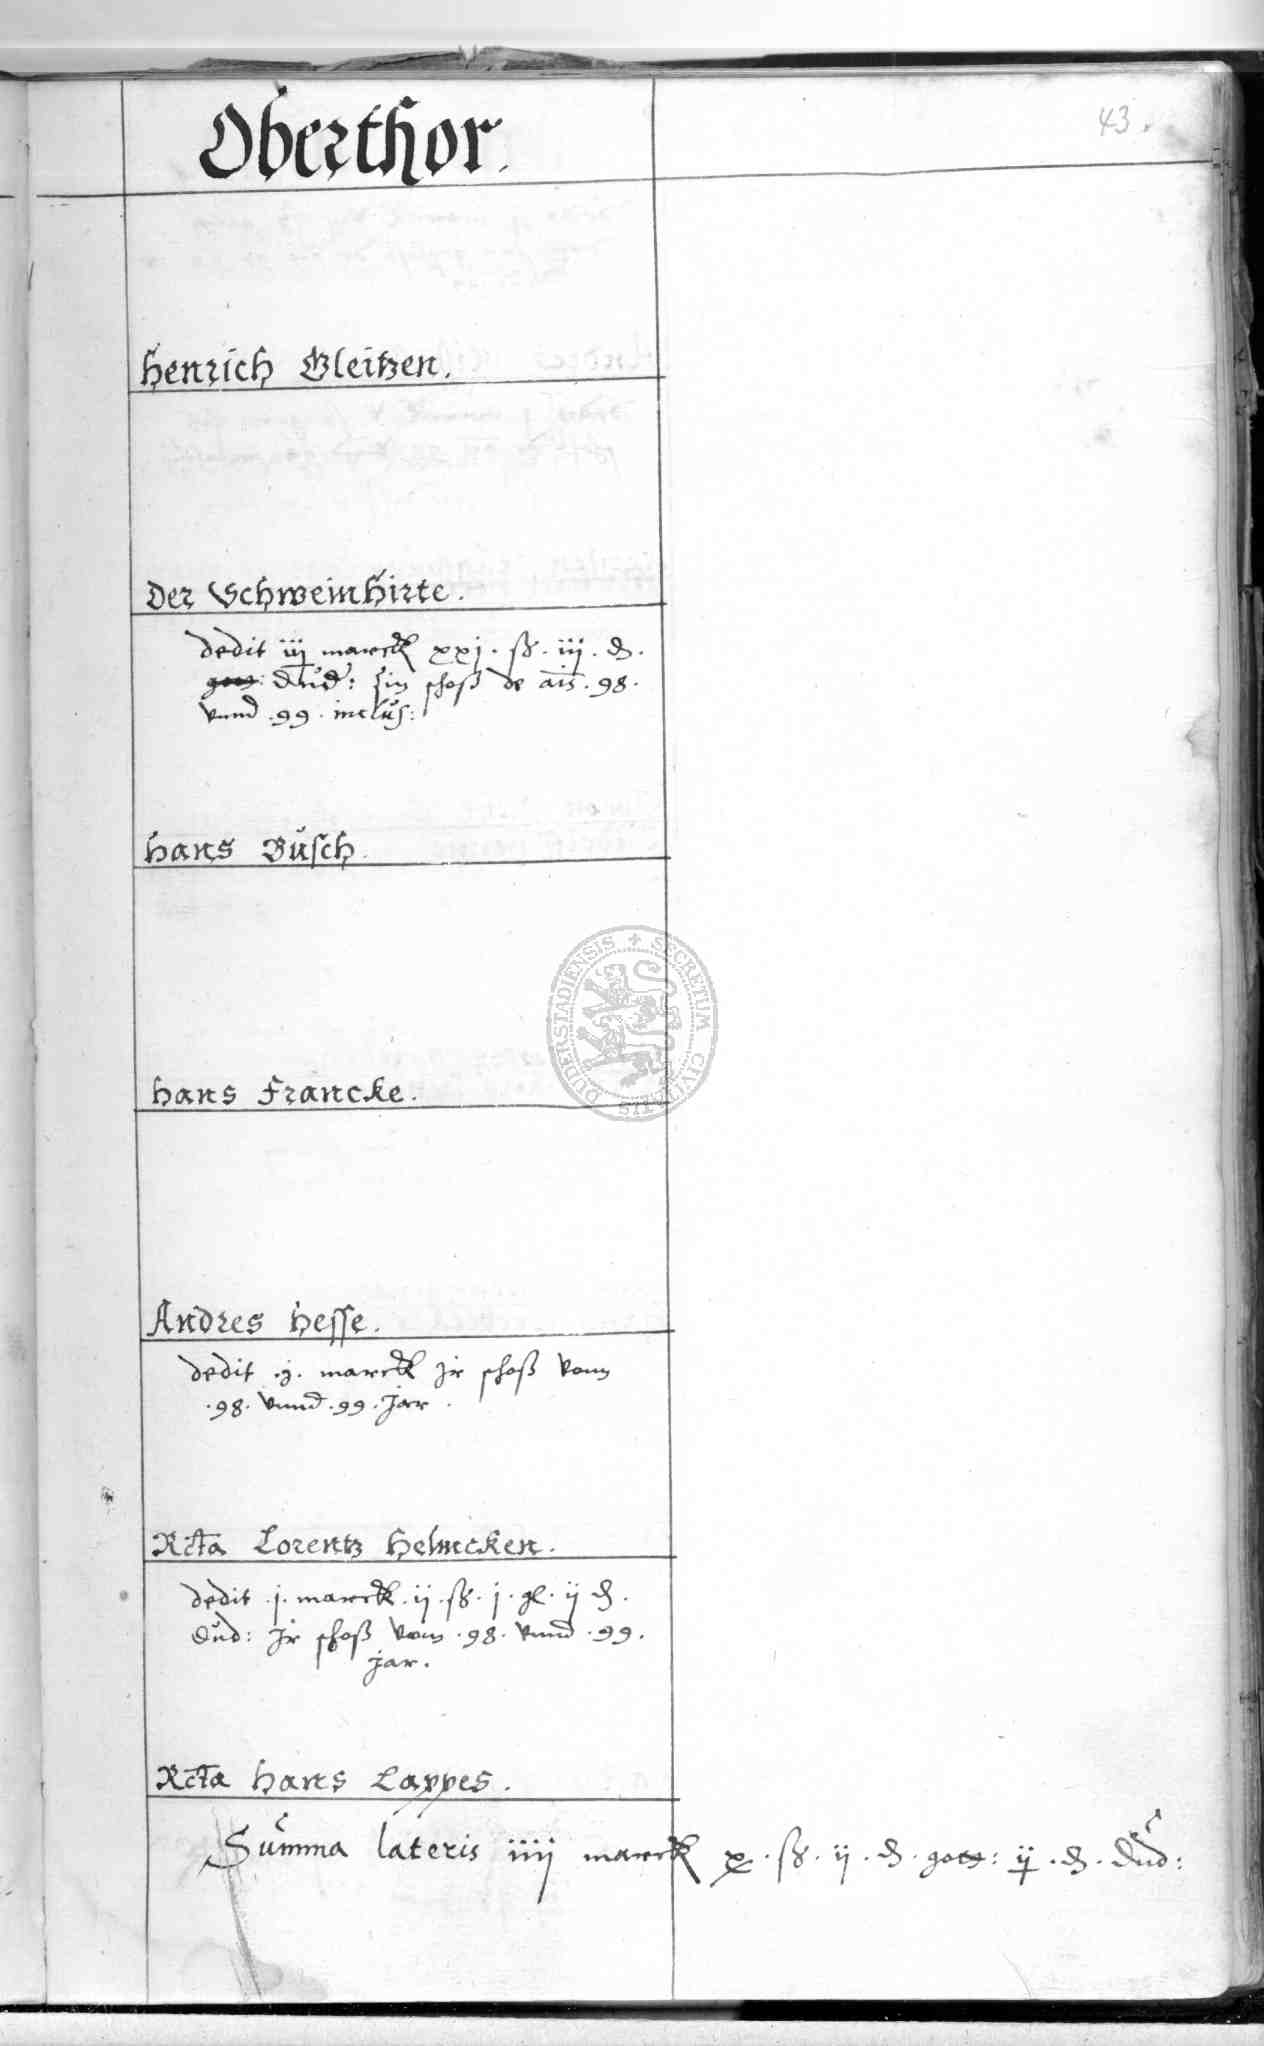 Oberthor.
43.
Henrich Gleitzen.
Der Schweinhirte.
dedit iij marck xxj. ß. iij. ₰.
gott: dud: sin schoß de ais. 98.
vnnd .99. inclus:
Hans Busch.
Hans Francke.
Andres Hesse.
dedit .j. marck Jr schoß vom
.98. vnnd .99. Jar.
Rcta Lorentz Helmcken.
dedit .j. marck. ij. ß. j. gl. ij ₰.
dud: Jr schoß vom .98. vnnd .99.
jar.
Rcta Hans Lappes.
Summa lateris iiij marck x. ß. ij. ₰. gott: ij. ₰. dud:
DUDERSTADIENSIS + SECRETUM CIVITATIS